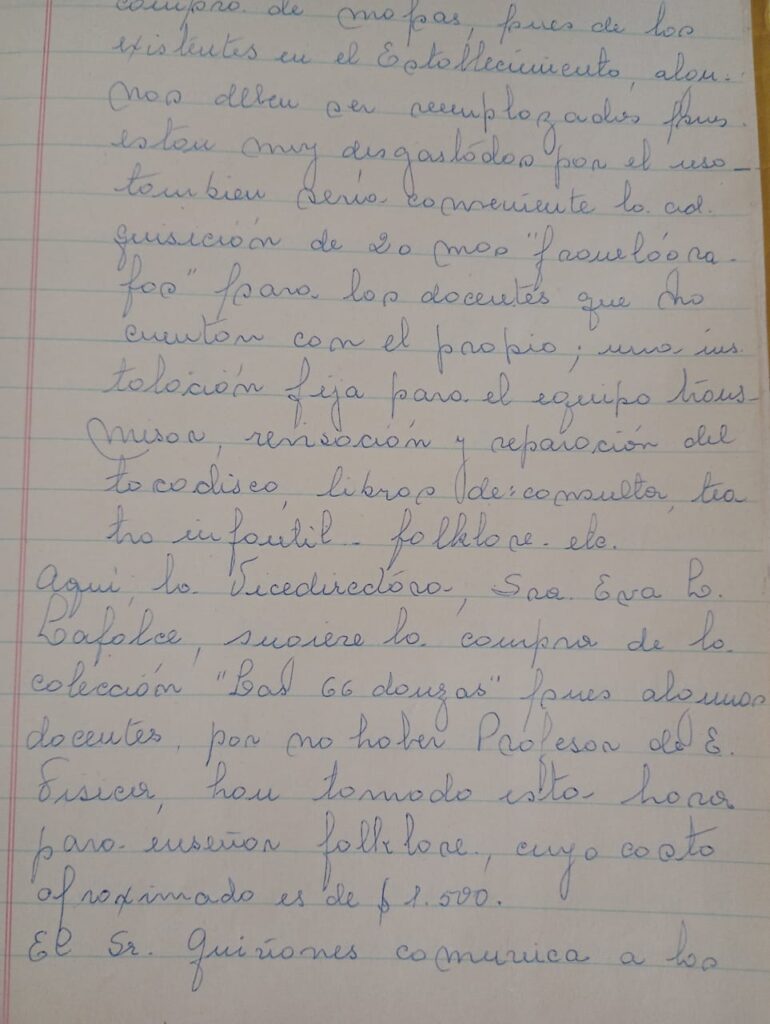 compra de mapas, pues de los
existentes en el Establecimiento, algu-
nos deben ser reemplazados pues
estan muy disgastádos por el uso -
tambien sería conveniente la ad.
quisición de 20 mas "franelógra-
fos" para los docentés que no
cuentan con el propio; una ins
talación fija para el equipo trans-
misor, revisación y reparación del
tocadisco, libros de: consulta, tea
tro infantil - folklore - etc.
Aqui, la Vicedirectóra, Sra. Eva L.
Lafalce, sugiere la compra de la
colección "Las 66 danzas" pues algunos
docentes, por no haber Profesor de E.
Fisica, han tomado esta hora
para enseñar folklore, cuyo costo
aproximado es de $ 1.500.
El Sr. Quiñones comunica a los